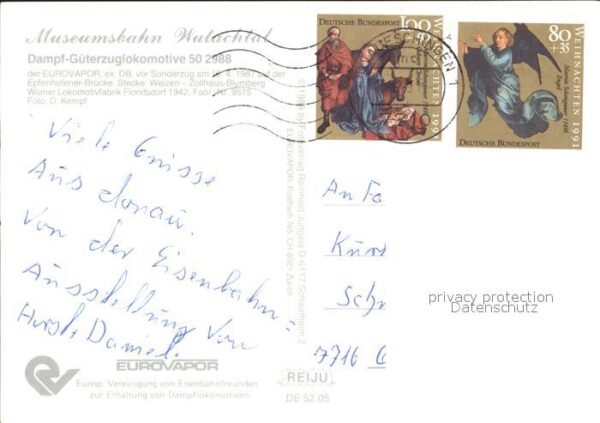 Museumsbahn Wutachtal
Dampf-Güterzuglokomotive 50 2988
der EUROVAPOR, ex. DB, vor Sonderzug am 18. 4. 1987 auf der
Epfenhofener-Brücke, Strecke: Weizen – Zollhaus-Blumberg
Wiener Lokomotivfabrik Floridsdorf 1942, Fabr. Nr. 9575
Foto: D. Kempf
Viele Grüsse
Aus donau.
Von der Eisenbahn=
Ausstellung von
Horst. Daniel.
EUROVAPOR
Europ. Vereinigung von Eisenbahnfreunden
zur Erhaltung von Dampflokomotiven
by Fotoverlag Reinhold Jungels D-6117 Schaafheim 2
EUROVAPOR, Postfach 765, CH-8021 Zürich
REIJU
DE 52 05
DEUTSCHE BUNDESPOST
100
+50
WEIHNACHTEN 1991
80
+35
WEIHNACHTEN 1991
Martin Schongauer
Engel
DEUTSCHE BUNDESPOST
1
An Fa
Kurt
Sch
7716 G
privacy protection
Datenschutz